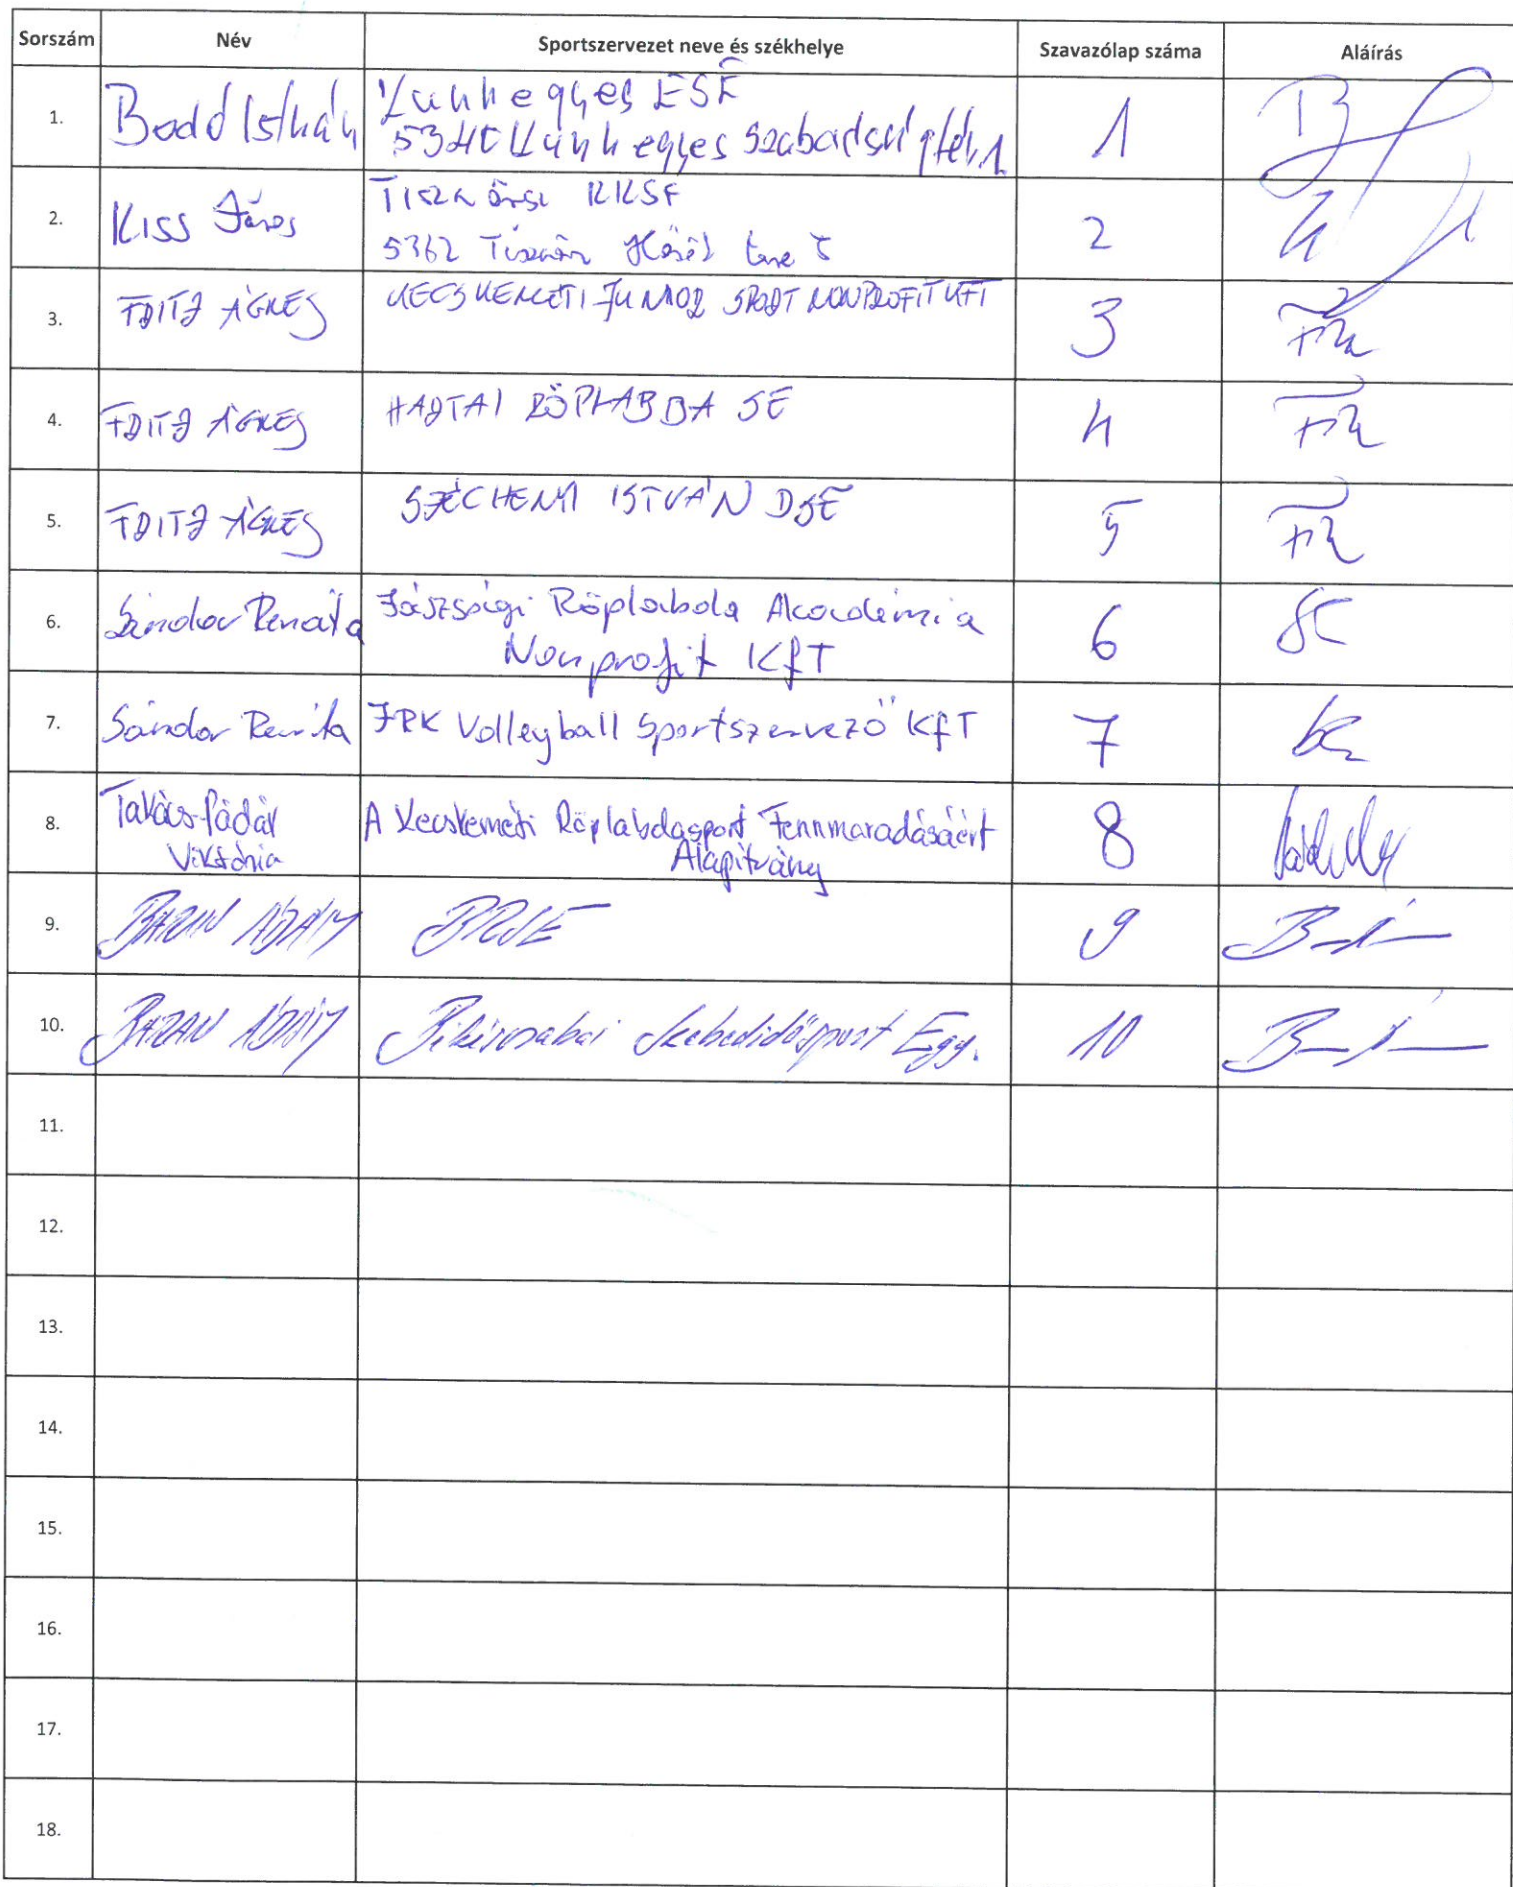 Sorszám Név Sportszervezet neve és székhelye Szavazólap száma Aláírás
1. Bodó István Kunhegyes ESE 1
5340 Kunhegyes Szabadság tér 1
2. Kiss János Tiszaörsi KKSE 2
5362 Tiszaörs Hősök tere 5
3. FRITZ ÁGNES KECSKEMÉTI JUNIOR SPORT NONPROFIT KFT 3
4. FRITZ ÁGNES HARTAI RÖPLABDA SE 4
5. FRITZ ÁGNES SZÉCHENYI ISTVÁN DSE 5
6. Sándor Renáta Jászsági Röplabda Akadémia 6
Nonprofit KfT
7. Sándor Renáta JRK Volleyball Sportszervező KfT 7
8. Takács-Pádár A Kecskeméti Röplabdasport Fennmaradásáért 8
Viktória Alapítvány
9. BARAN ÁDÁM BRSE 9
10. BARAN ÁDÁM Békéscsabai Szabadidősport Egy. 10
11.
12.
13.
14.
15.
16.
17.
18.